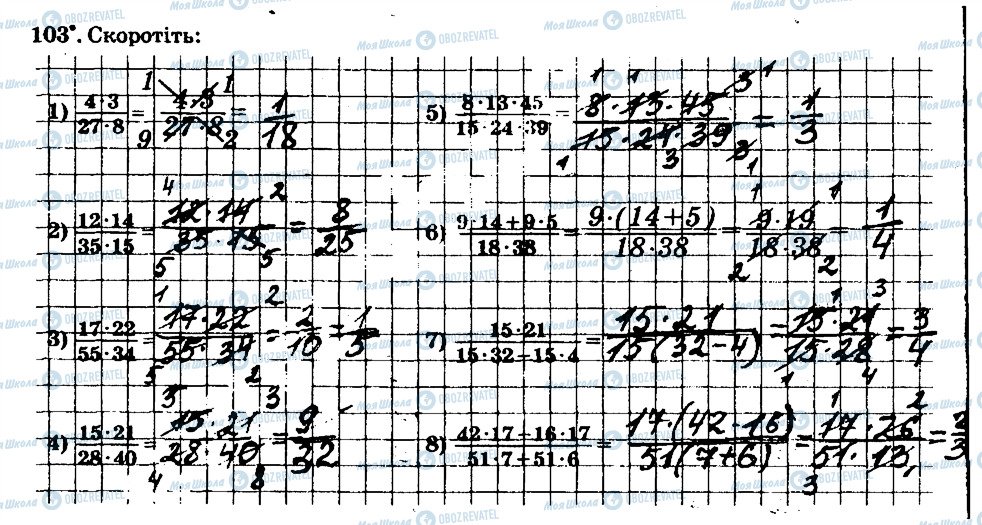 103°. Скоротіть:
1) 4·3/27·8 = 4·3/27·8 = 1/18
2) 12·14/35·15 = 12·14/35·15 = 8/25
3) 17·22/55·34 = 17·22/55·34 = 2/10 = 1/5
4) 15·21/28·40 = 15·21/28·40 = 9/32
5) 8·13·45/15·24·39 = 8·13·45/15·24·39 = 1/3
6) 9·14+9·5/18·38 = 9·(14+5)/18·38 = 9·19/18·38 = 1/4
7) 15·21/15·32−15·4 = 15·21/15(32−4) = 15·21/15·28 = 3/4
8) 42·17−16·17/51·7+51·6 = 17·(42-16)/51(7+6) = 17·26/51·13 = 2/3
Моя Школа OBOZREVATEL